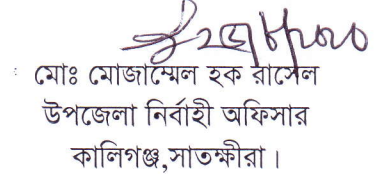 মোঃ মোজাম্মেল হক রাসেল
উপজেলা নির্বাহী অফিসার
কালিগঞ্জ,সাতক্ষীরা।